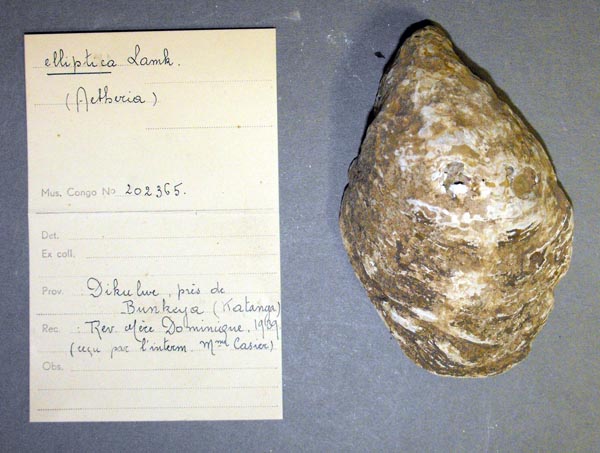 elliptica Lamk.
(Aetheria)
Mus. Congo No 202365.
Det.
Ex coll.
Prov. Dikulwe, près de
Bunkeya (Katanga)
Rec. : Rev. Mère Dominique,
(reçu par l'interm. Mme Casier)
Obs.